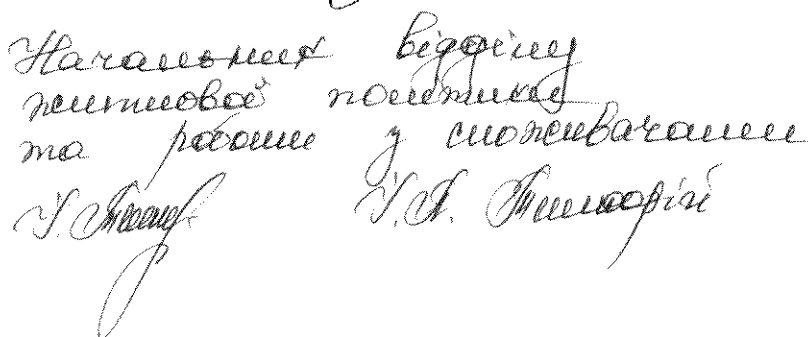 Начальник відділу
житлової політики
та роботи у споживачами
І. А.